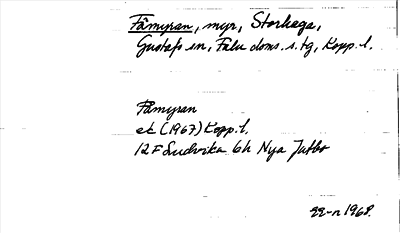 Fämyran, myr, Storhaga,
Gustafs sn, Falu doms. s. tg, Kopp. l.
Fämyran
ek (1967) Kopp. l.
12 F Ludvika 6h Nya Jutbo
22-n 1968.